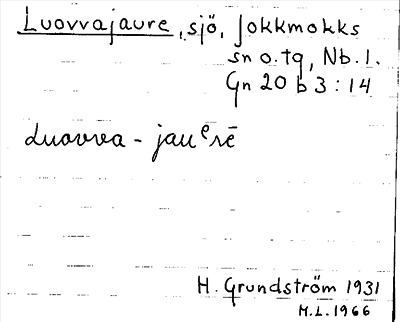 Luovvajaure, sjö, Jokkmokks
sn o. tg, Nb. l.
Gn 20 b 3 : 14
luovva - jauᵉrē
H. Grundström 1931
M.L. 1966